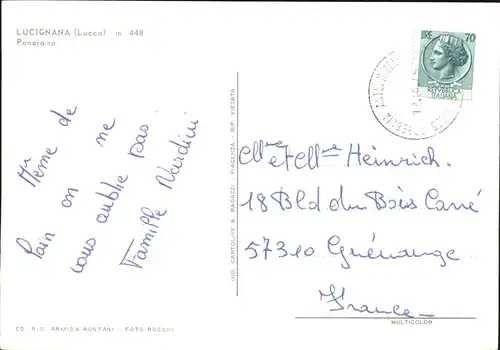 LUCIGNANA (Lucca) m. 448
Panorama
Même de
loin on ne
vous oublie pas
Famille Nardini
IND. CARTOLINE A. RAGAZZI - PIACENZA - RIP. VIETATA
LIRE 70
REPVBBLICA
ITALIANA
Mme et Mlle Heinrich.
18 Bld du Bois Carré
57310 Guénange
France
ED. RIS. ARMIDA ROSTANI - FOTO ROCCHI
MULTICOLOR